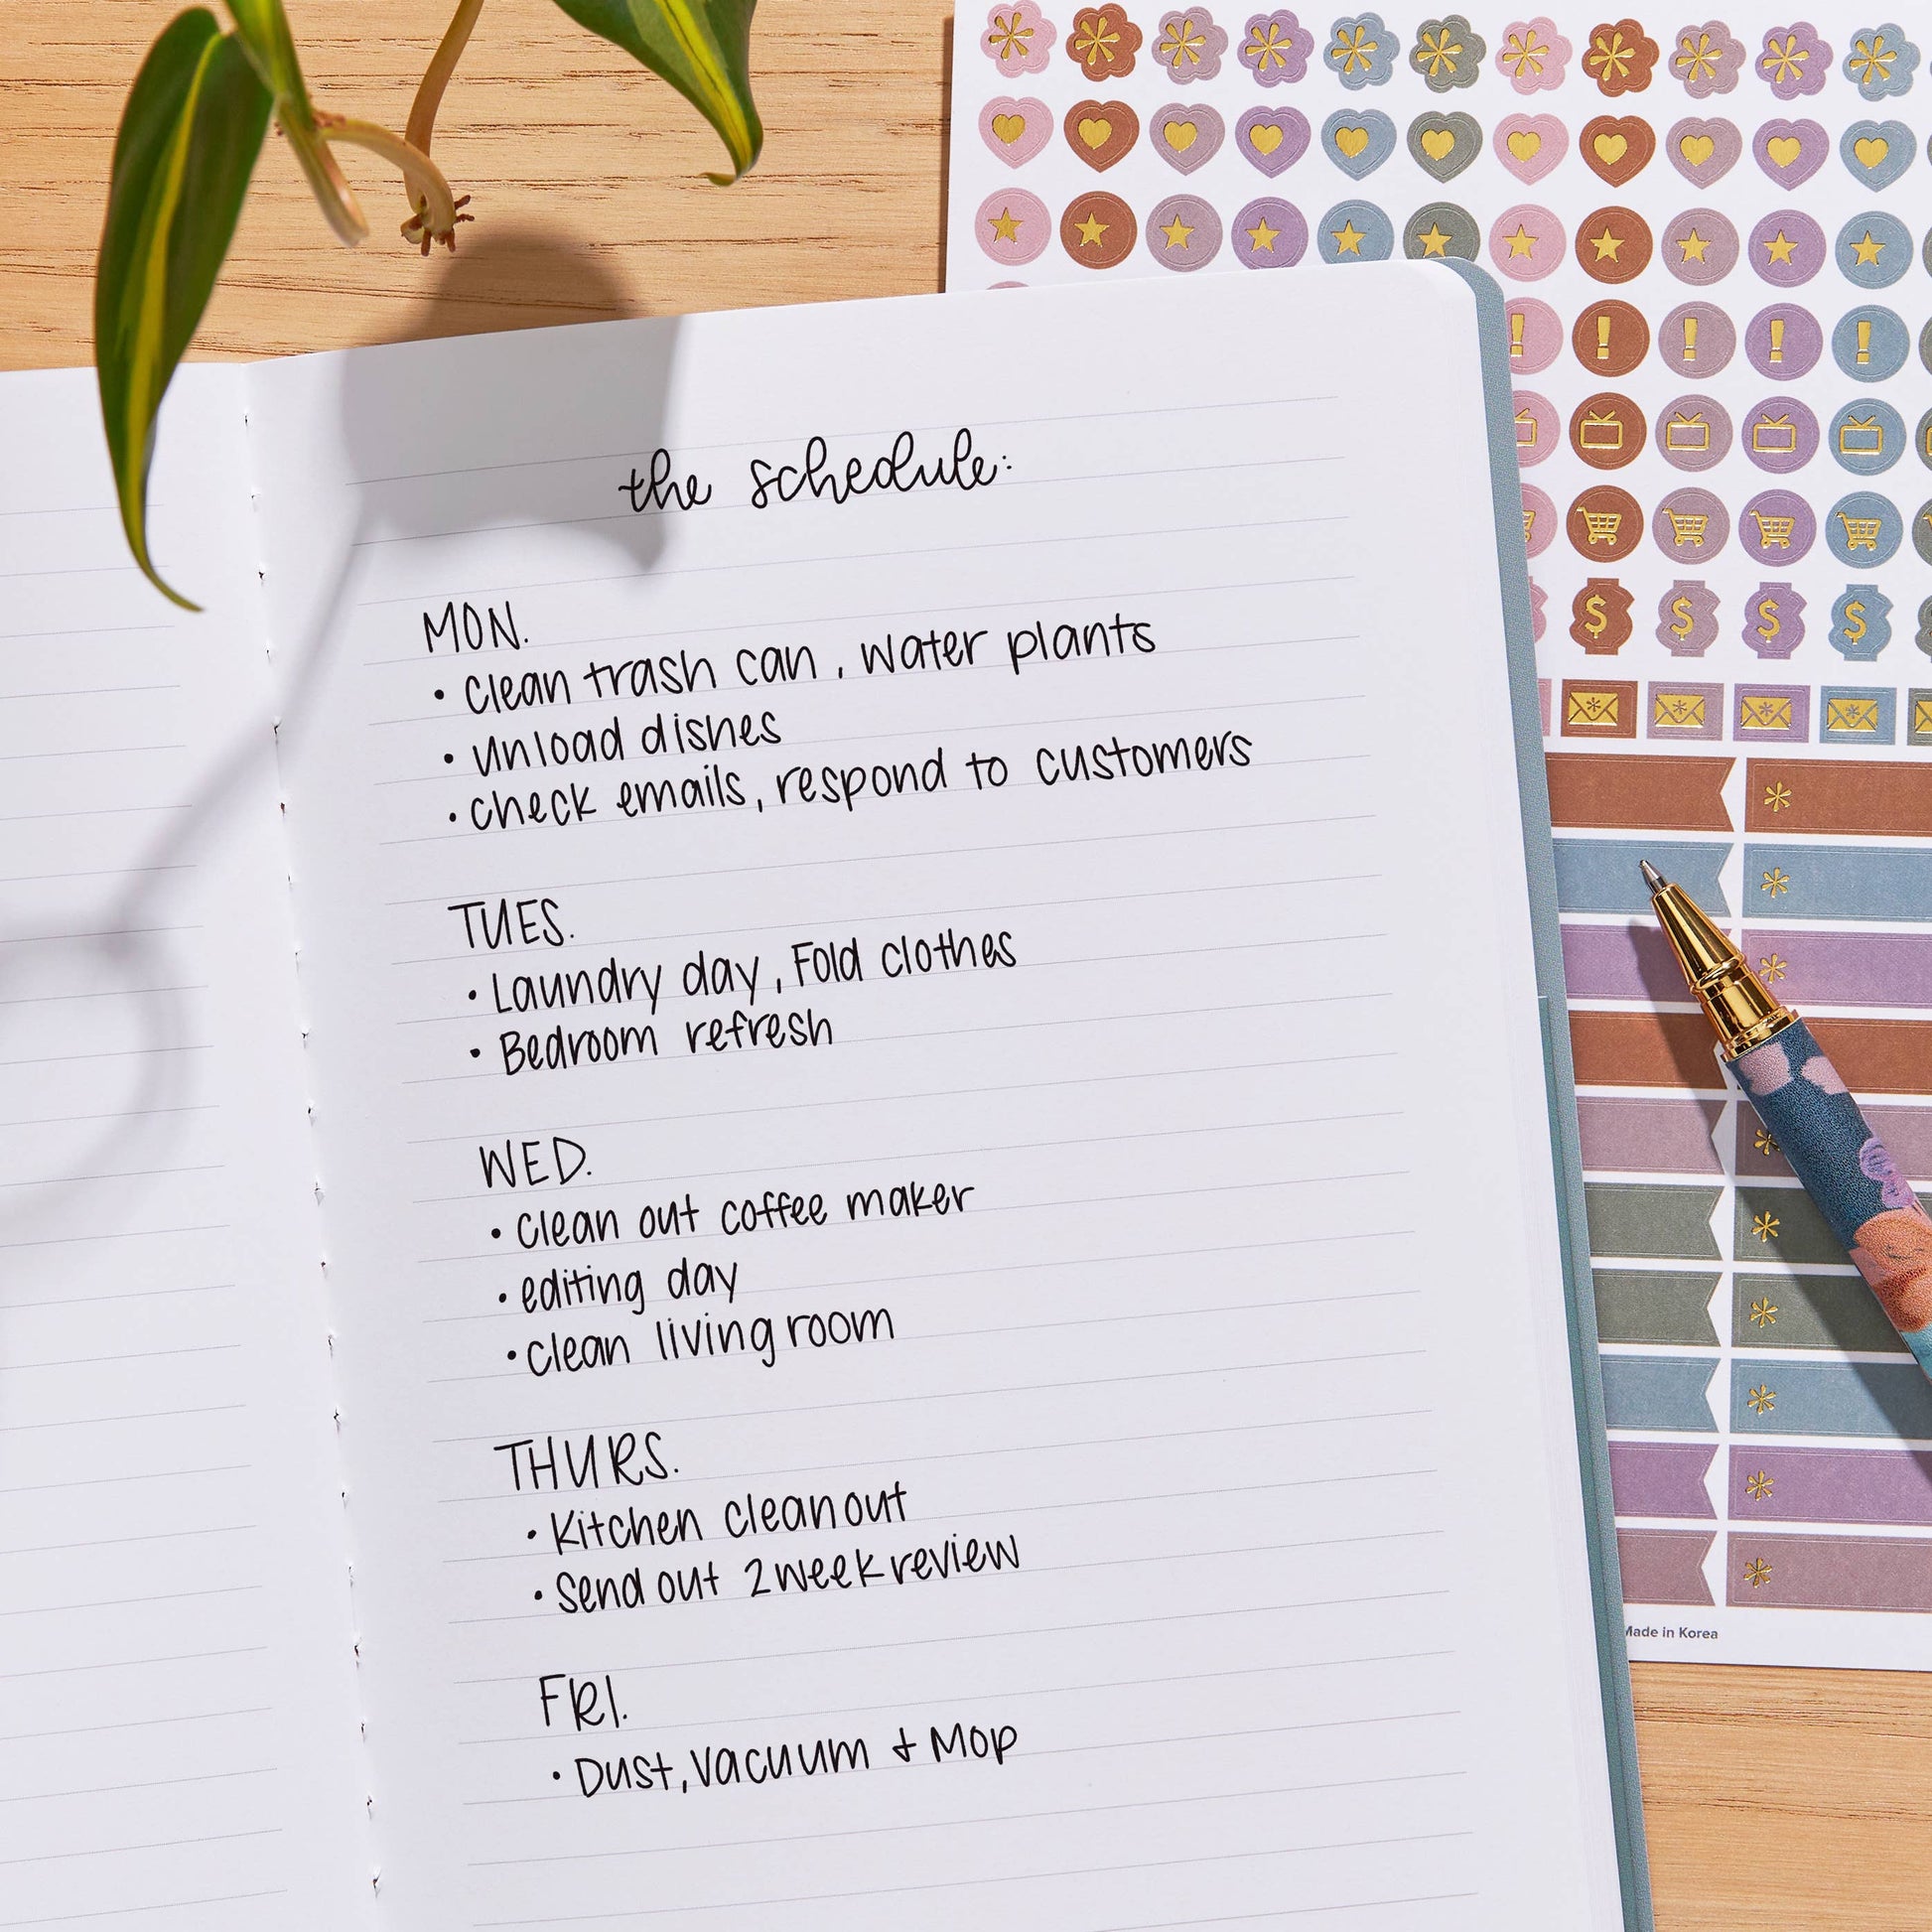 the schedule:
MON.
• clean trash can, water plants
• unload dishes
• check emails, respond to customers
TUES.
• Laundry day, Fold clothes
• Bedroom refresh
WED.
• clean out coffee maker
• editing day
• clean living room
THURS.
• Kitchen clean out
• Send out 2 week review
FRI.
• Dust, Vacuum + Mop
!
!
!
!
!
$
$
$
$
Made in Korea